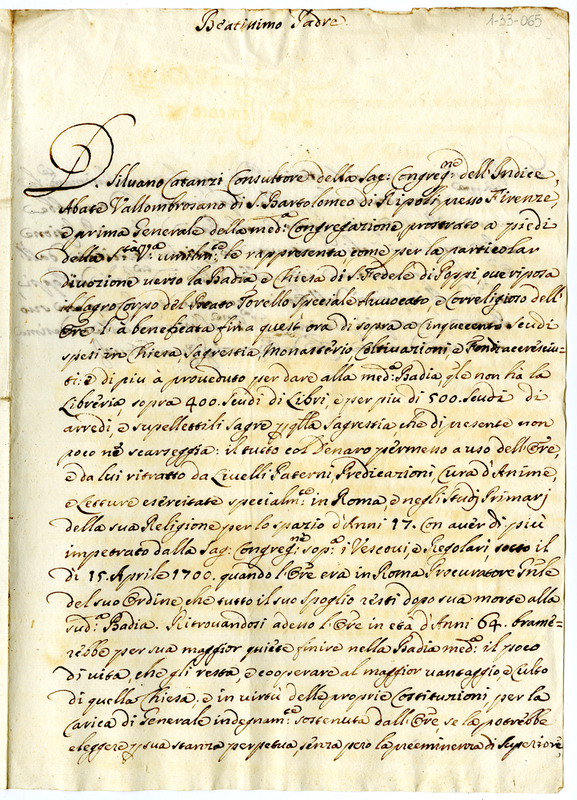 Beatissimo Padre
1-33-065
D. Silvano Catanzi Consultore della Sag: Congreg:ne dell'Indice,
Abate Vallombrosano di S. Bartolomeo di Ripoli presso Firenze,
e prima Generale della med:a Congregazione prostrato a piedi
della S:tà V:a umilm:te le rappresenta come per la particolar
divozione verso la Badia e Chiesa di S. Fedele di Poppi, ove riposa
il sagro Corpo del Beato Torello speciale Avvocato e Correligioso dell'
Ore l'à beneficata fin a quest'ora di sopra a cinquecento Scudi
spesi in Chiesa, Sagrestia, Monasterio Coltivazioni e Fondi accresciu-
ti: e di più à proveduto per dare alla med:a Badia, q'le non hà la
Libreria, sopra 400. Scudi di Libri, e per più di 500. Scudi di
arredi, e supellettili sagre p q'lla Sagrestia che di presente non
poco ne scarseggia: il tutto col Denaro permesso a uso dell'Ore,
e da lui ritratto da Livelli Paterni, Predicazioni, Cura d'Anime,
e Letture esercitate specialm:te in Roma, e negli Studj Primarj
della sua Religione per lo spazio d'Anni 17. Con aver di più
impetrato dalla Sag: Congreg:ne sop:a i Vescovi, e Regolari, sotto il
di 15. Aprile 1700. quando l'Ore era in Roma Procuratore Gn'le
del suo Ordine, che tutto il suo spoglio resti dopo sua morte alla
sud:a Badia. Ritrovandosi adesso l'Ore in età d'Anni 64. brame-
rebbe per sua maggior quiete finire nella Badia med:a il poco
di vita, che gli resta, e cooperare al maggior vantaggio, e culto
di quella Chiesa, e in virtù delle proprie Costituzioni per la
Carica di Generale indegnam:te sostenuta dall'Ore se la potrebbe
eleggere p sua stanza perpetua, senza però la preeminenza di Superiore,